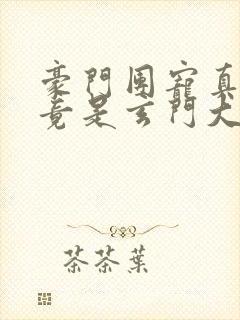 豪門團寵真
竟是玄門大
茶茶葉